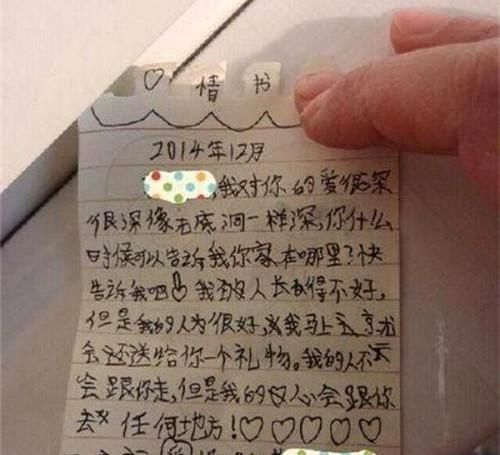 ♡ 情 书
2014年12月
,我对你的爱很深
很深像无底洞一样深,你什么
时候可以告诉我你家在哪里?快
告诉我吧 我 人长 得不好,
但是我的人为很好,
会还送给你一个礼物。我的人不
会跟你走,但是我的 心会跟你
去 任何地方!♡♡♡♡♡